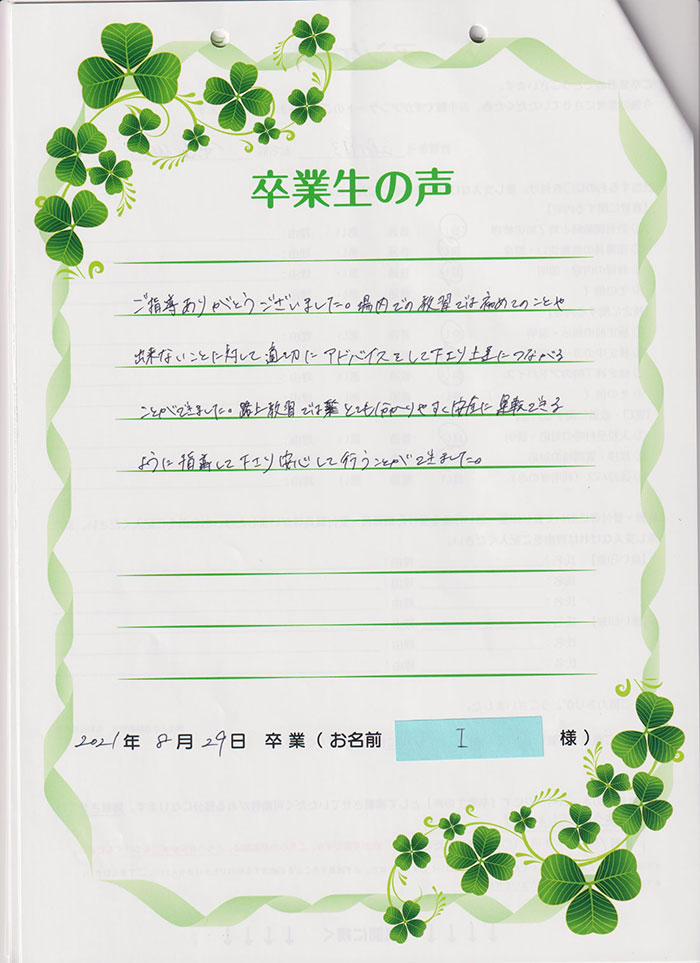 卒業生の声
ご指導ありがとうございました。場内での教習では初めてのことや
出来ないことに対して適切にアドバイスをして下さり上達につなげる
ことができました。路上教習ではとても分かりやすく安全に運転できる
ように指導して下さり安心して行うことができました。
2021年 8月29日 卒業(お名前 I 様)